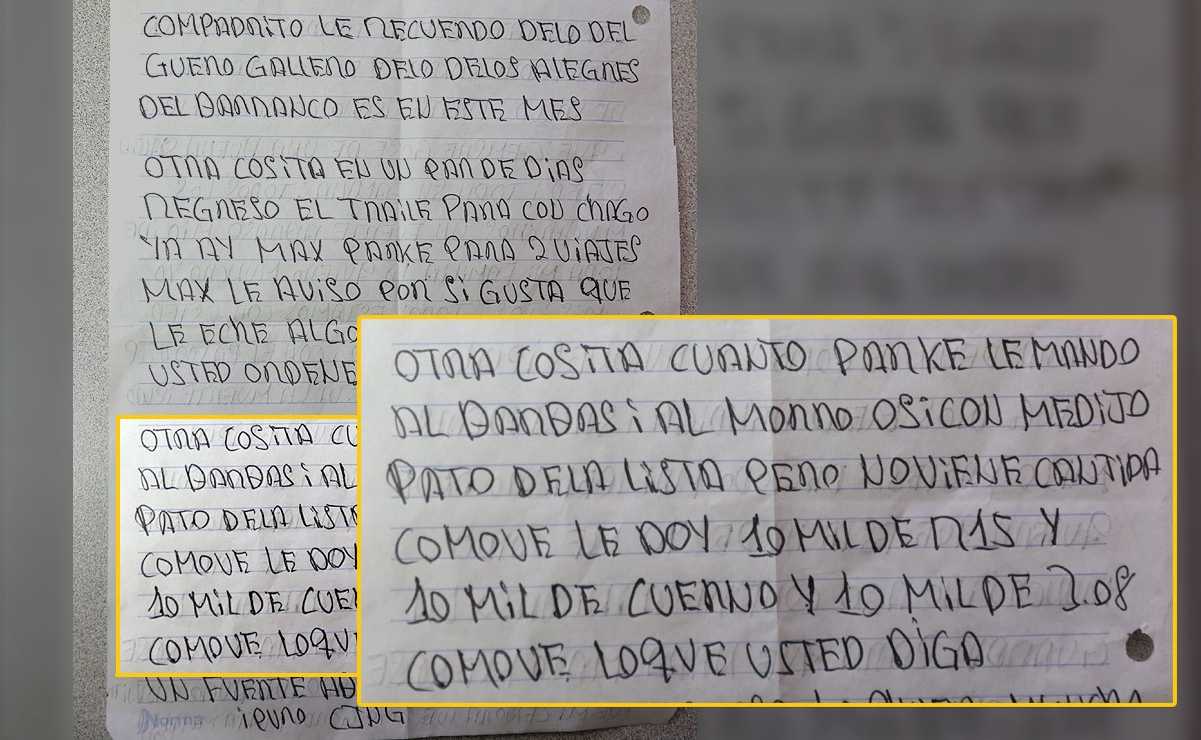 COMPADRITO LE RECUERDO DELO DEL
GUERO GALLERO DELO DELOS ALEGRES
DEL BARRANCO ES EN ESTE MES
OTRA COSITA EN UN PAR DE DIAS
REGRESO EL TRAILE PARA CON CHAGO
YA AY MAX PARKE PARA 2 VIAJES
MAX LE AVISO POR SI GUSTA QUE
LE ECHE ALGO
USTED ORDENE
OTRA COSITA CU
AL BARBAS i AL
PATO DELA LIST
COMOVE LE DOY
10 MIL DE CUER
COMOVE LOQU
UN FUERTE AB
iPURO CJNG
OTRA COSITA CUANTO PARKE LE MANDO
AL BARBAS i AL MORRO OSICON MEDIJO
PATO DELA LISTA PERO NOVIENE CANTIDA
COMOVE LE DOY 10 MIL DE R15 Y
10 MIL DE CUERNO Y 10 MIL DE 3.08
COMOVE LOQUE USTED DIGA